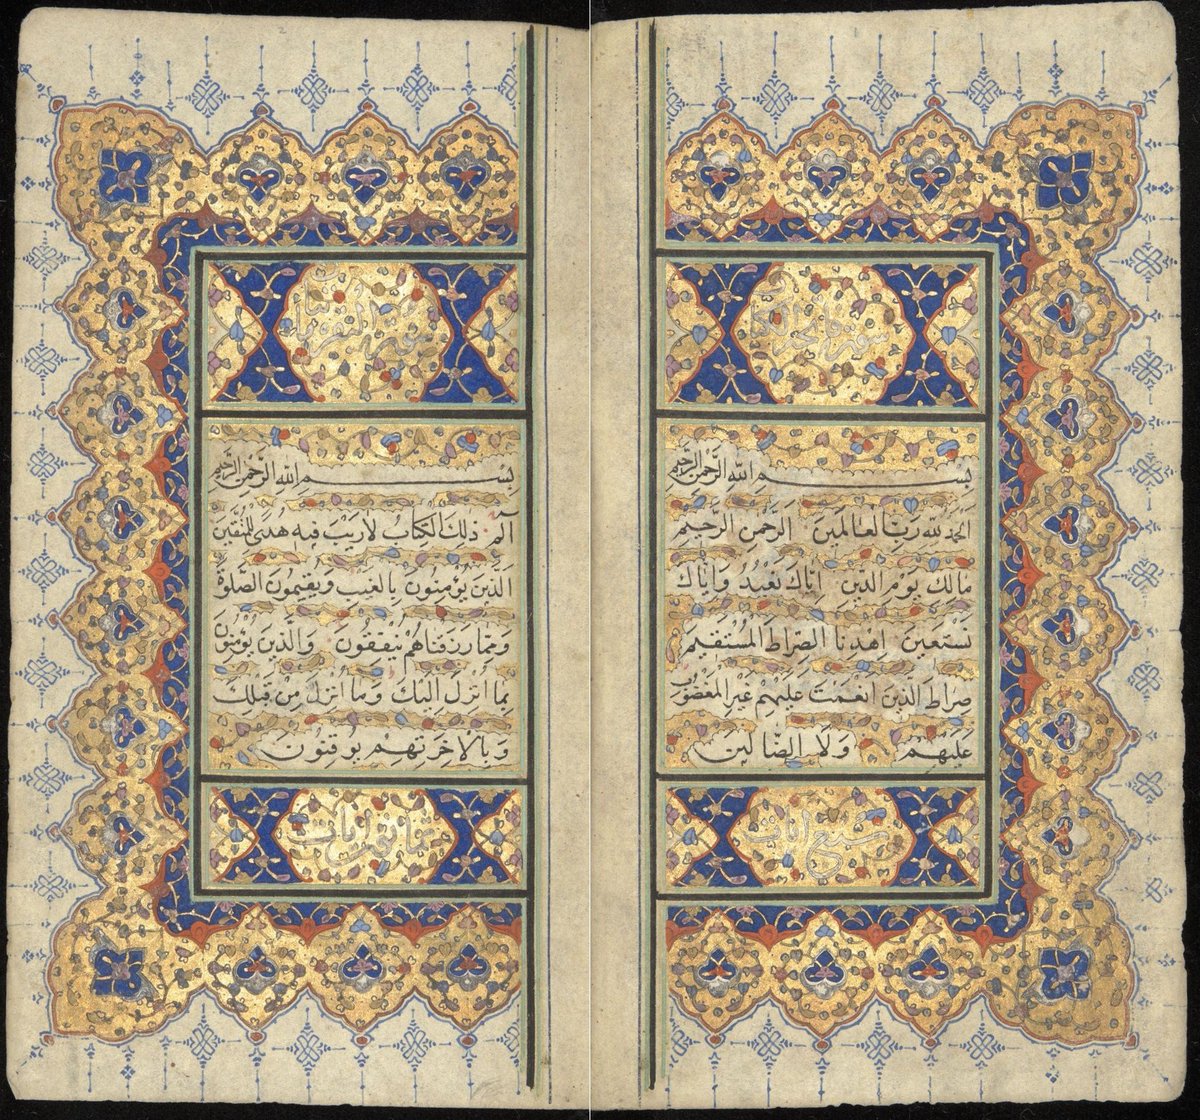 سورة فاتحة الكتاب
بسم الله الرحمن الرحيم
الحمد لله رب العالمين الرحمن الرحيم
مالك يوم الدين اياك نعبد واياك
نستعين اهدنا الصراط المستقيم
صراط الذين انعمت عليهم غير المغضوب
عليهم ولا الضالين
سبع ايات
سورة البقرة
بسم الله الرحمن الرحيم
آلم ذلك الكتاب لا ريب فيه هدى للمتقين
الذين يؤمنون بالغيب ويقيمون الصلوة
ومما رزقناهم ينفقون والذين يؤمنون
بما انزل اليك وما انزل من قبلك
وبالاخرتهم يوقنون
ايات